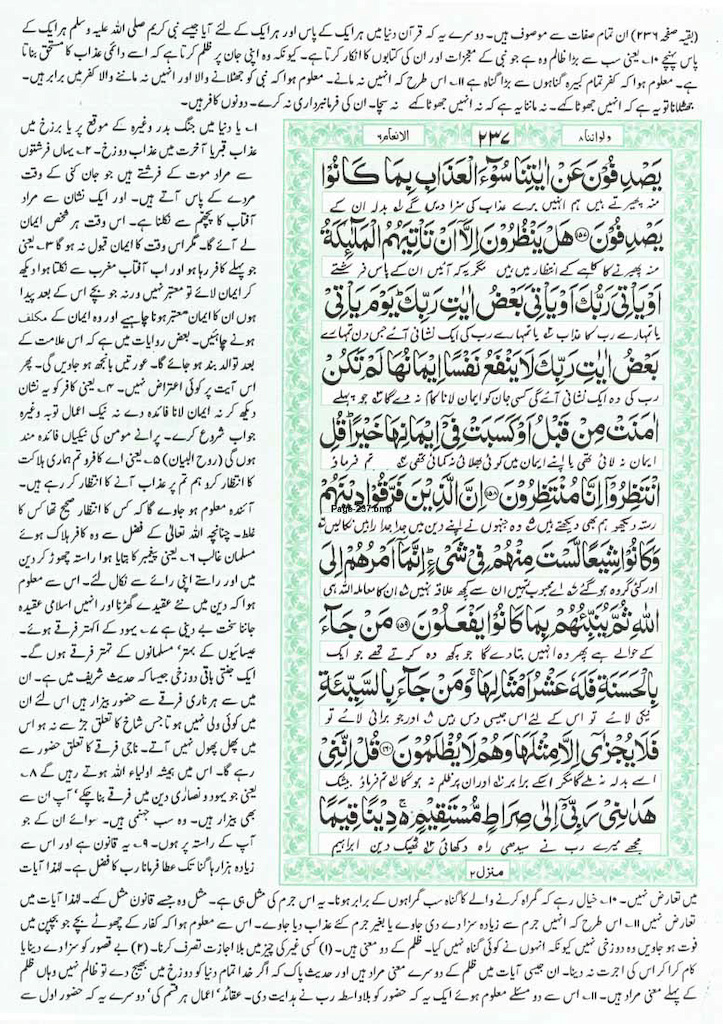 (بقیہ صفحہ ۲۳۶) ان تمام صفات سے موصوف ہیں۔ دوسرے یہ کہ قرآن دنیا میں ہر ایک کے پاس اور ہر ایک کے لئے آیا جیسے نبی کریم صلی اللہ علیہ وسلم ہر ایک کے
پاس پہنچے ۱۰۔ یعنی سب سے بڑا ظالم وہ ہے جو نبی کے معجزات اور ان کی کتابوں کا انکار کرتا ہے۔ کیونکہ وہ اپنی جان پر ظلم کرتا ہے کہ اسے دائمی عذاب کا مستحق بناتا
ہے۔ معلوم ہوا کہ کفر تمام کبیرہ گناہوں سے بڑا گناہ ہے ۱۱۔ اس طرح کہ انہیں نہ مانے۔ معلوم ہوا کہ نبی کو جھٹلانے والا اور انہیں نہ ماننے والا کفر میں برابر ہیں۔
جھٹلانا تو یہ ہے کہ انہیں جھوٹا کہے۔ نہ ماننا یہ ہے کہ نہ انہیں جھوٹا کہے نہ سچا۔ ان کی فرمانبرداری نہ کرے۔ دونوں کافر ہیں۔
ولواننا ۸
۲۳۷
الانعام ۶
يَصْدِفُوْنَ عَنْ اٰيٰتِنَا سُوْٓءَ الْعَذَابِ بِمَا كَانُوْا
منہ پھیرتے ہیں ہم انہیں برے عذاب کی سزا دیں گے لہ بدلہ ان کے
يَصْدِفُوْنَ ﴿۱۵۷﴾ هَلْ يَنْظُرُوْنَ اِلَّاۤ اَنْ تَاْتِيَهُمُ الْمَلٰٓئِكَةُ
منہ پھیرنے کا کاہے کے انتظار میں ہیں مگر یہ کہ آئیں ان کے پاس فرشتے
اَوْ يَاْتِيَ رَبُّكَ اَوْ يَاْتِيَ بَعْضُ اٰيٰتِ رَبِّكَ ؕ يَوْمَ يَاْتِيْ
یا تمہارے رب کا عذاب یا تمہارے رب کی ایک نشانی آئے جس دن تمہارے
بَعْضُ اٰيٰتِ رَبِّكَ لَا يَنْفَعُ نَفْسًا اِيْمَانُهَا لَمْ تَكُنْ
رب کی وہ ایک نشانی آئے گی کسی جان کو ایمان لانا کام نہ دے گا جو پہلے
اٰمَنَتْ مِنْ قَبْلُ اَوْ كَسَبَتْ فِيْۤ اِيْمَانِهَا خَيْرًا ؕ قُلِ
ایمان نہ لائی تھی یا اپنے ایمان میں کوئی بھلائی نہ کمائی تھی تم فرماؤ
انْتَظِرُوْۤا اِنَّا مُنْتَظِرُوْنَ ﴿۱۵۸﴾ اِنَّ الَّذِيْنَ فَرَّقُوْا دِيْنَهُمْ
Page-237.bmp
رستہ دیکھو ہم بھی دیکھتے ہیں وہ جنہوں نے اپنے دین میں جدا جدا راہیں نکالیں
وَكَانُوْا شِيَعًا لَّسْتَ مِنْهُمْ فِيْ شَيْءٍ ؕ اِنَّمَاۤ اَمْرُهُمْ اِلَى
اور کئی گروہ ہو گئے اے محبوب تمہیں ان سے کچھ علاقہ نہیں ان کا معاملہ اللہ ہی
اللّٰهِ ثُمَّ يُنَبِّئُهُمْ بِمَا كَانُوْا يَفْعَلُوْنَ ﴿۱۵۹﴾ مَنْ جَآءَ
کے حوالے ہے پھر وہ انہیں بتا دے گا جو کچھ وہ کرتے تھے جو ایک
بِالْحَسَنَةِ فَلَهٗ عَشْرُ اَمْثَالِهَا ۚ وَمَنْ جَآءَ بِالسَّيِّئَةِ
نیکی لائے تو اس کے لئے اس جیسی دس ہیں اور جو برائی لائے تو
فَلَا يُجْزٰۤى اِلَّا مِثْلَهَا وَهُمْ لَا يُظْلَمُوْنَ ﴿۱۶۰﴾ قُلْ اِنَّنِيْ
اسے بدلہ نہ ملے گا مگر اسکے برابر اور ان پر ظلم نہ ہو گا تم فرماؤ بیشک
هَدٰىنِيْ رَبِّيْۤ اِلٰى صِرَاطٍ مُّسْتَقِيْمٍ ۚ دِيْنًا قِيَمًا
مجھے میرے رب نے سیدھی راہ دکھائی ٹھیک دین ابراہیم
منزل ۲
۱۔ یا دنیا میں جنگ بدر وغیرہ کے موقع پر یا برزخ میں
عذاب قبر یا آخرت میں عذاب دوزخ۔ ۲۔ یہاں فرشتوں
سے مراد موت کے فرشتے ہیں جو جان کنی کے وقت
مردے کے پاس آتے ہیں۔ اور ایک نشان سے مراد
آفتاب کا پچھم سے نکلنا ہے۔ اس وقت ہر شخص ایمان
لے آئے گا۔ مگر اس وقت کا ایمان قبول نہ ہو گا ۳۔ یعنی
جو پہلے کافر رہا ہو اور اب آفتاب مغرب سے نکلتا ہوا دیکھ
کر ایمان لائے تو معتبر نہیں ورنہ جو بچے اس کے بعد پیدا
ہوں ان کا ایمان معتبر ہونا چاہیے اور وہ ایمان کے مکلف
ہونے چاہئیں۔ بعض روایات میں ہے کہ اس علامت کے
بعد توالد بند ہو جائے گا۔ عورتیں بانجھ ہو جاویں گی۔ پھر
اس آیت پر کوئی اعتراض نہیں۔ ۴۔ یعنی کافر کو یہ نشان
دیکھ کر نہ ایمان لانا فائدہ دے نہ نیک اعمال توبہ وغیرہ
جواب شروع کرے۔ پرانے مومن کی نیکیاں فائدہ مند
ہوں گی (روح البیان) ۵۔ یعنی اے کافرو تم ہماری ہلاکت
کا انتظار کرو ہم تم پر عذاب آنے کا انتظار کر رہے ہیں۔
آئندہ معلوم ہو جاوے گا کہ کس کا انتظار صحیح تھا کس کا
غلط۔ چنانچہ اللہ تعالیٰ کے فضل سے وہ کافر ہلاک ہوئے
مسلمان غالب ۶۔ یعنی پیغمبر کا بتایا ہوا راستہ چھوڑ کر دین
میں اور راستے اپنی رائے سے نکال لئے۔ اس سے معلوم
ہوا کہ دین میں نئے عقیدے گھڑنا اور انہیں اسلامی عقیدہ
جاننا سخت بے دینی ہے ۷۔ یہود کے اکہتر فرقے ہوئے۔
عیسائیوں کے بہتر' مسلمانوں کے تہتر فرقے ہوں گے۔
ایک جنتی باقی دوزخی جیسا کہ حدیث شریف میں ہے۔ ان
میں سے ہر ناری فرقے سے حضور بیزار ہیں اس لئے ان
میں کوئی ولی نہیں ہوتا جس شاخ کا تعلق جڑ سے نہ ہو اس
میں پھل پھول نہیں آتے۔ ناجی فرقے کا تعلق حضور سے
رہے گا۔ اس میں ہمیشہ اولیاء اللہ ہوتے رہیں گے ۸۔
یعنی جو یہود و نصاریٰ دین میں فرقے بنا چکے' آپ ان سے
بھی بیزار ہیں۔ وہ سب جہنمی ہیں۔ سوائے ان کے جو
آپ کے راستہ پر ہوں۔ ۹۔ یہ قانون ہے اور اس سے
زیادہ ہزارہا گنا تک عطا فرمانا رب کا فضل ہے۔ لہٰذا آیات
میں تعارض نہیں۔ ۱۰۔ خیال رہے کہ گمراہ کرنے والے کا گناہ سب گمراہوں کے برابر ہونا۔ یہ اس جرم کی مثل ہی ہے۔ مثل وہ جسے قانون مثل کہے۔ لہٰذا آیات میں
تعارض نہیں ۱۱۔ اس طرح کہ انہیں جرم سے زیادہ سزا دے دی جاوے یا بغیر جرم کئے عذاب دیا جاوے۔ اس سے معلوم ہوا کہ کفار کے چھوٹے بچے جو بچپن میں
فوت ہو جاویں وہ دوزخی نہیں کیونکہ انہوں نے کوئی گناہ نہیں کیا۔ ظلم کے دو معنی ہیں۔ (۱) کسی غیر کی چیز میں بلا اجازت تصرف کرنا۔ (۲) بے قصور کو سزا دے دینا یا
کام کرا کر اس کی اجرت نہ دینا۔ ان جیسی آیات میں ظلم کے دوسرے معنی مراد ہیں اور حدیث پاک کہ اگر خدا تمام دنیا کو دوزخ میں بھیج دے تو ظالم نہیں وہاں ظلم
کے پہلے معنی مراد ہیں۔ ۱۱۔ اس سے دو مسئلے معلوم ہوئے ایک یہ کہ حضور کو بلاواسطہ رب نے ہدایت دی۔ عقائد' اعمال ہر قسم کی' دوسرے یہ کہ حضور اول سے